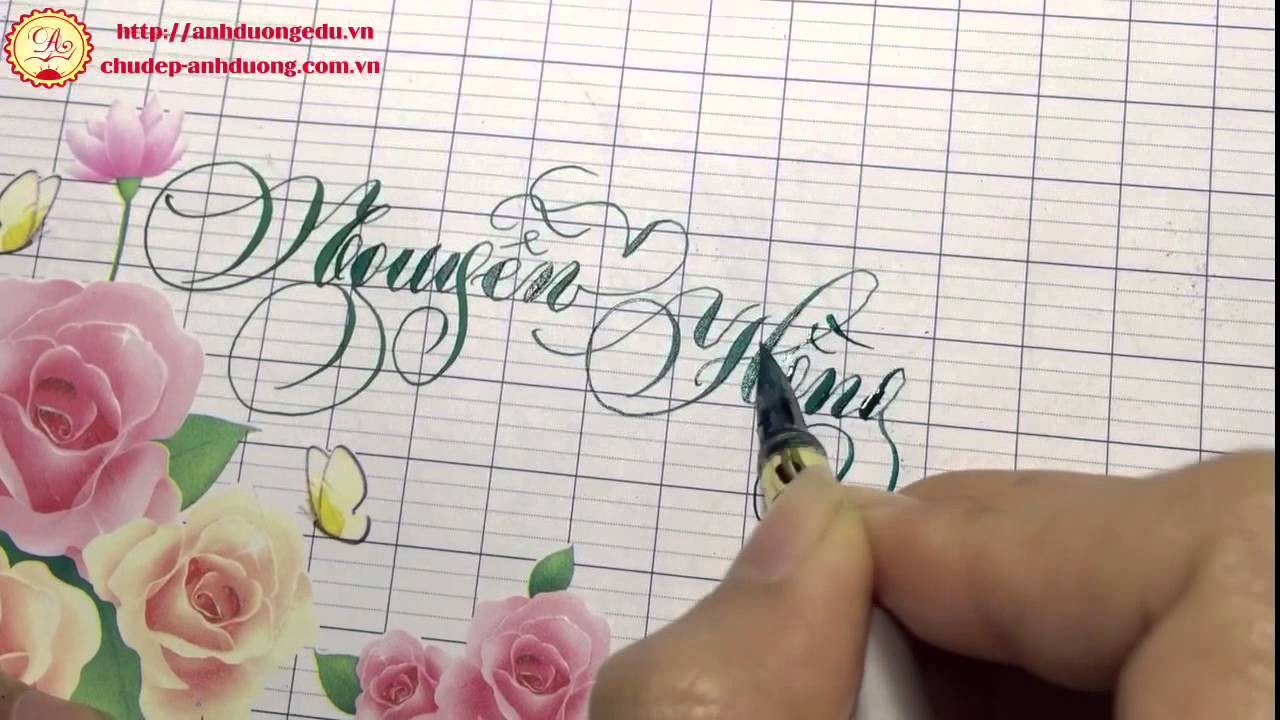 http://anhduongedu.vn
chudep-anhduong.com.vn
Nguyễn